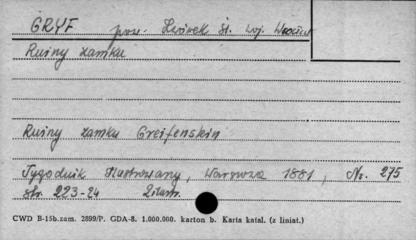 GRYF pow. Lwówek Śl. woj. Wrocław
Ruiny zamku
Ruiny zamku Greifenstin
Tygodnik Illustrowany, Warszwa 1881, No. 275
str. 223-24
CWD B-15b.zam. 2899/P. GDA-8. 1.000.000. karton b. Karta katal. (z liniat.)